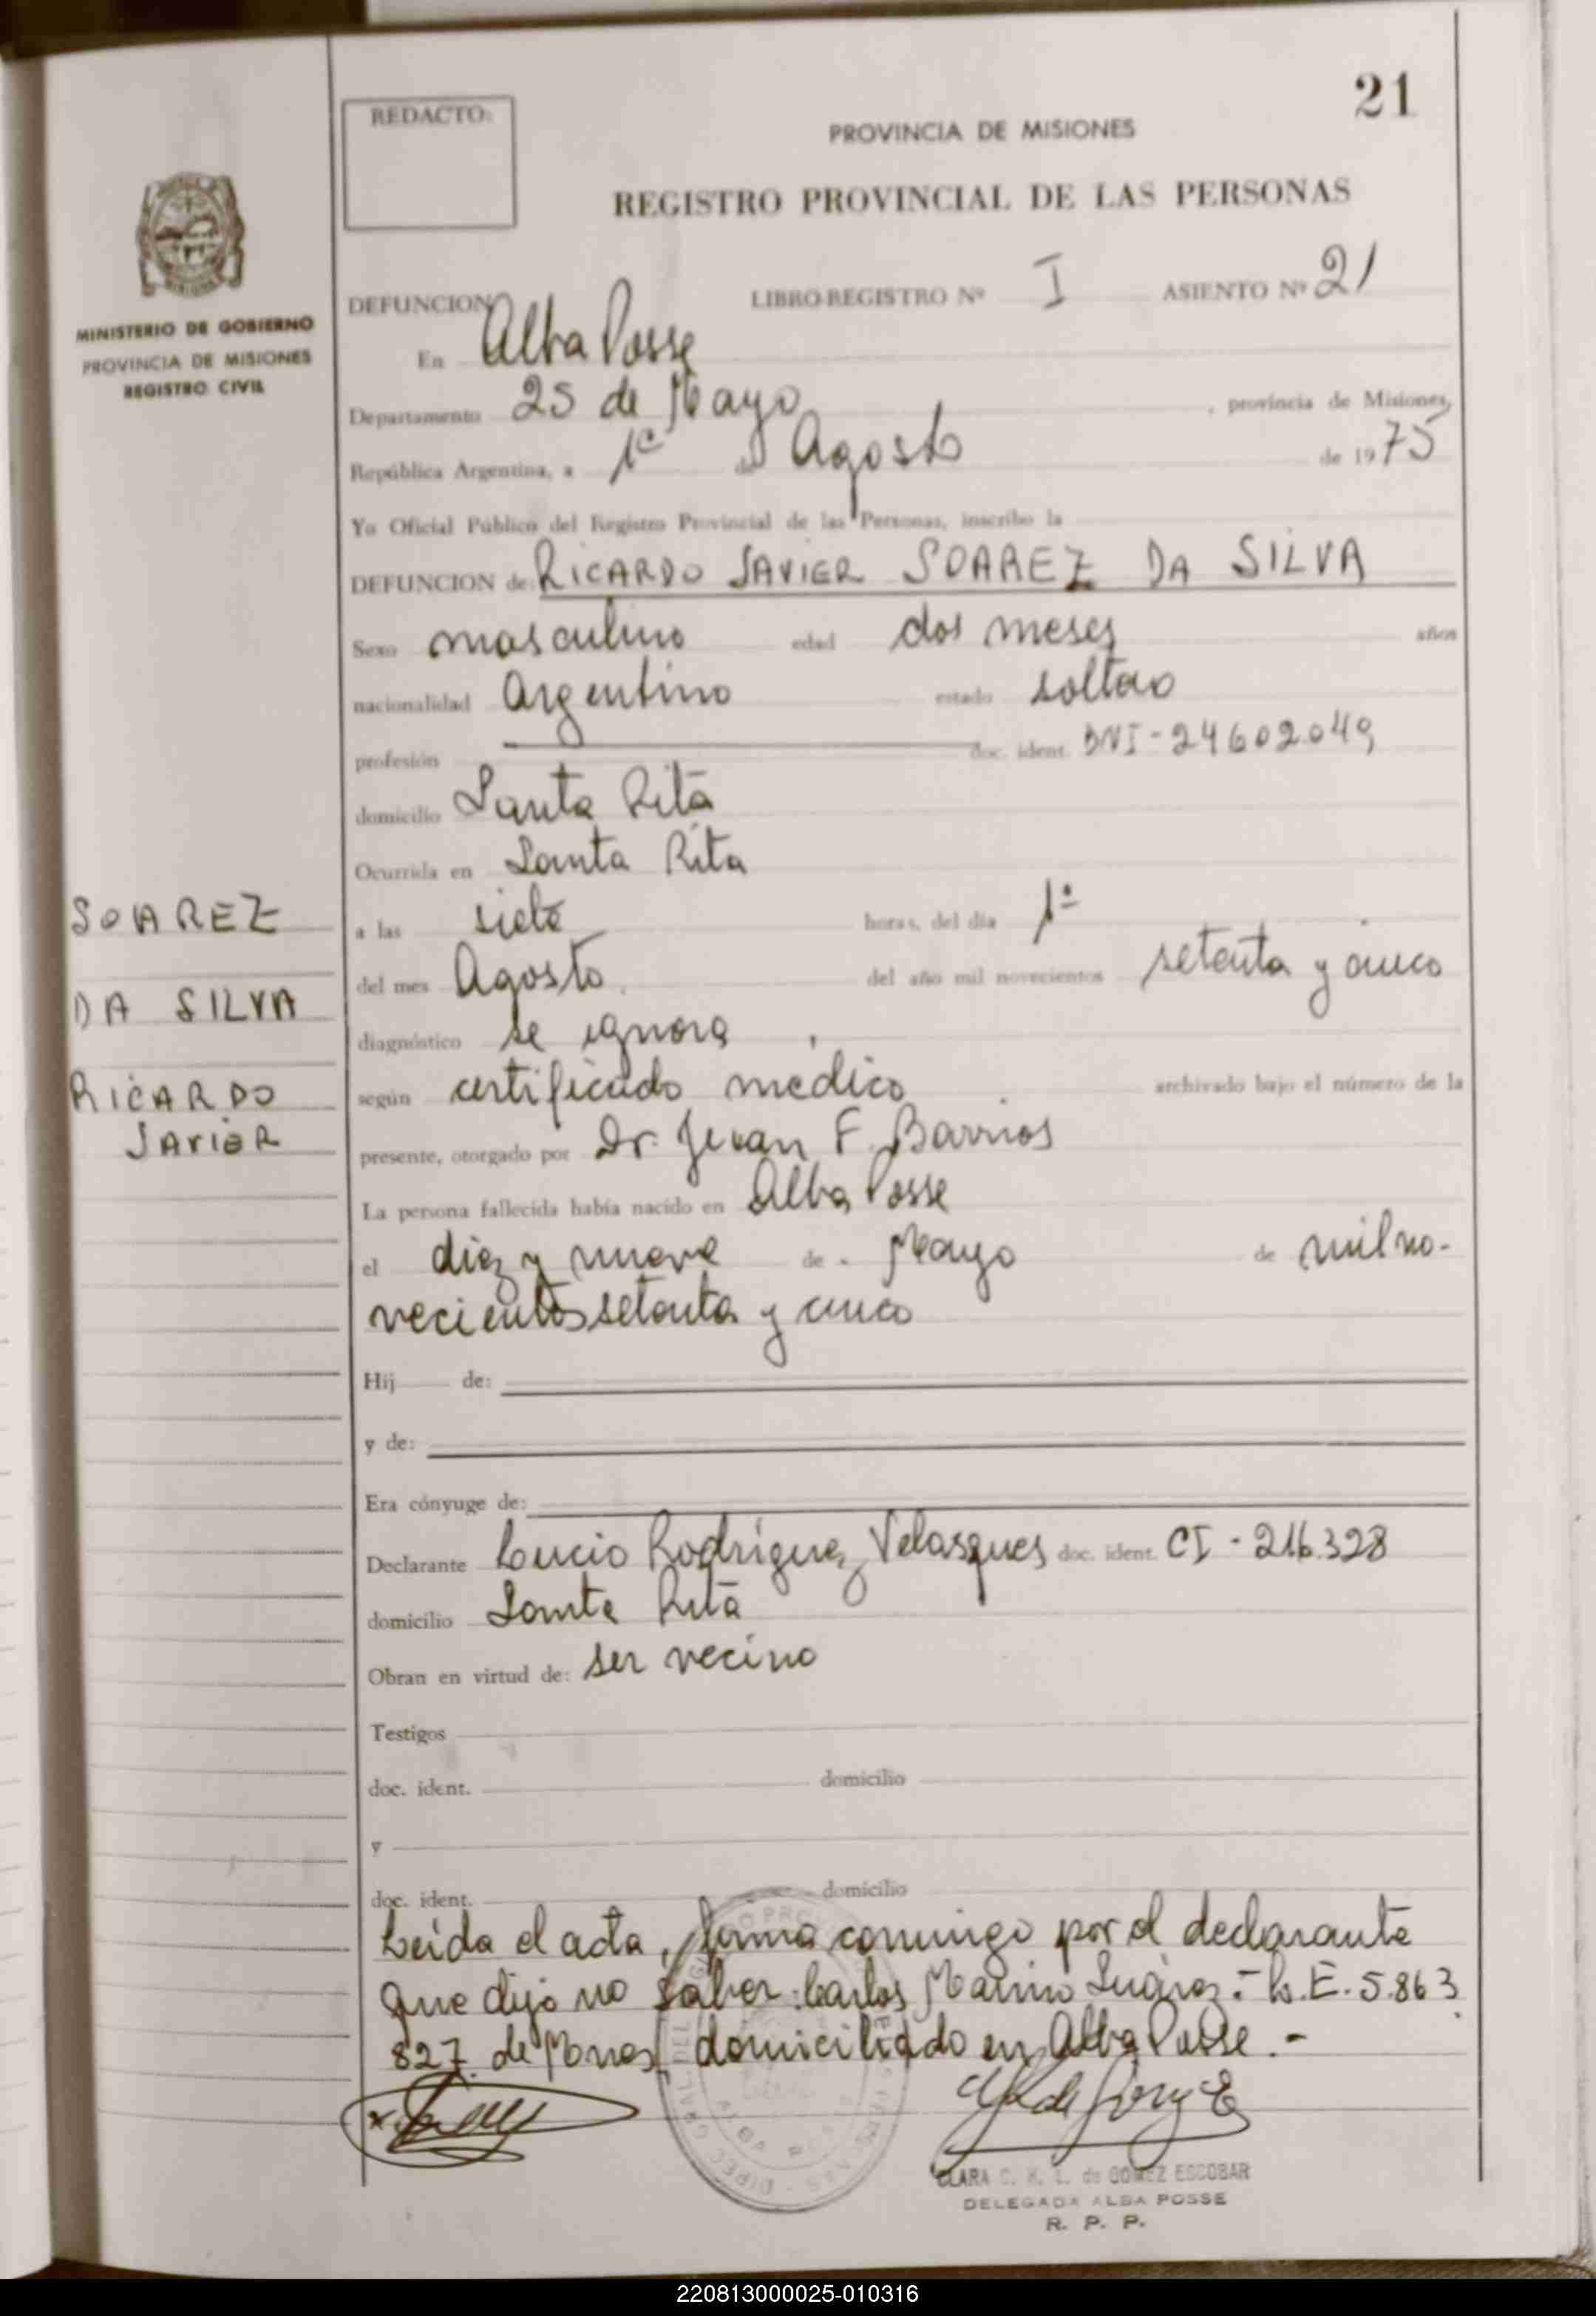 21
REDACTO:
PROVINCIA DE MISIONES
REGISTRO PROVINCIAL DE LAS PERSONAS
MINISTERIO DE GOBIERNO
PROVINCIA DE MISIONES
REGISTRO CIVIL
DEFUNCION LIBRO-REGISTRO Nº I ASIENTO Nº 21
En Alba Posse
Departamento 25 de Mayo, provincia de Misiones,
República Argentina, a 1º de Agosto de 1975
Yo Oficial Público del Registro Provincial de las Personas, inscribo la
DEFUNCION de: RICARDO JAVIER SOAREZ DA SILVA
Sexo masculino edad dos meses años
nacionalidad Argentino estado soltero
profesión doc. ident. DNI-24602049
domicilio Santa Rita
Ocurrida en Santa Rita
SOAREZ
DA SILVA
RICARDO
JAVIER
a las siete horas, del día 1º
del mes Agosto. del año mil novecientos setenta y cinco
diagnóstico se ignora
según certificado medico archivado bajo el número de la
presente, otorgado por Dr. Juan F. Barrios
La persona fallecida había nacido en Alba Posse
el diez y nueve de Mayo de mil no-
vecientos setenta y cinco
Hij de:
y de:
Era cónyuge de:
Declarante Lucio Rodriguez Velasques doc. ident. CI - 216.328
domicilio Santa Rita
Obran en virtud de: ser vecino
Testigos
doc. ident. domicilio
y
doc. ident. domicilio
Leida el acta, firma conmigo por el declarante
que dijo no saber: Carlos Marino Suarez - L.E. 5.863
827 domiciliado en Alba Posse. -
CLARA C. de GOMEZ ESCOBAR
DELEGADA ALBA POSSE
R. P. P.
220813000025-010316